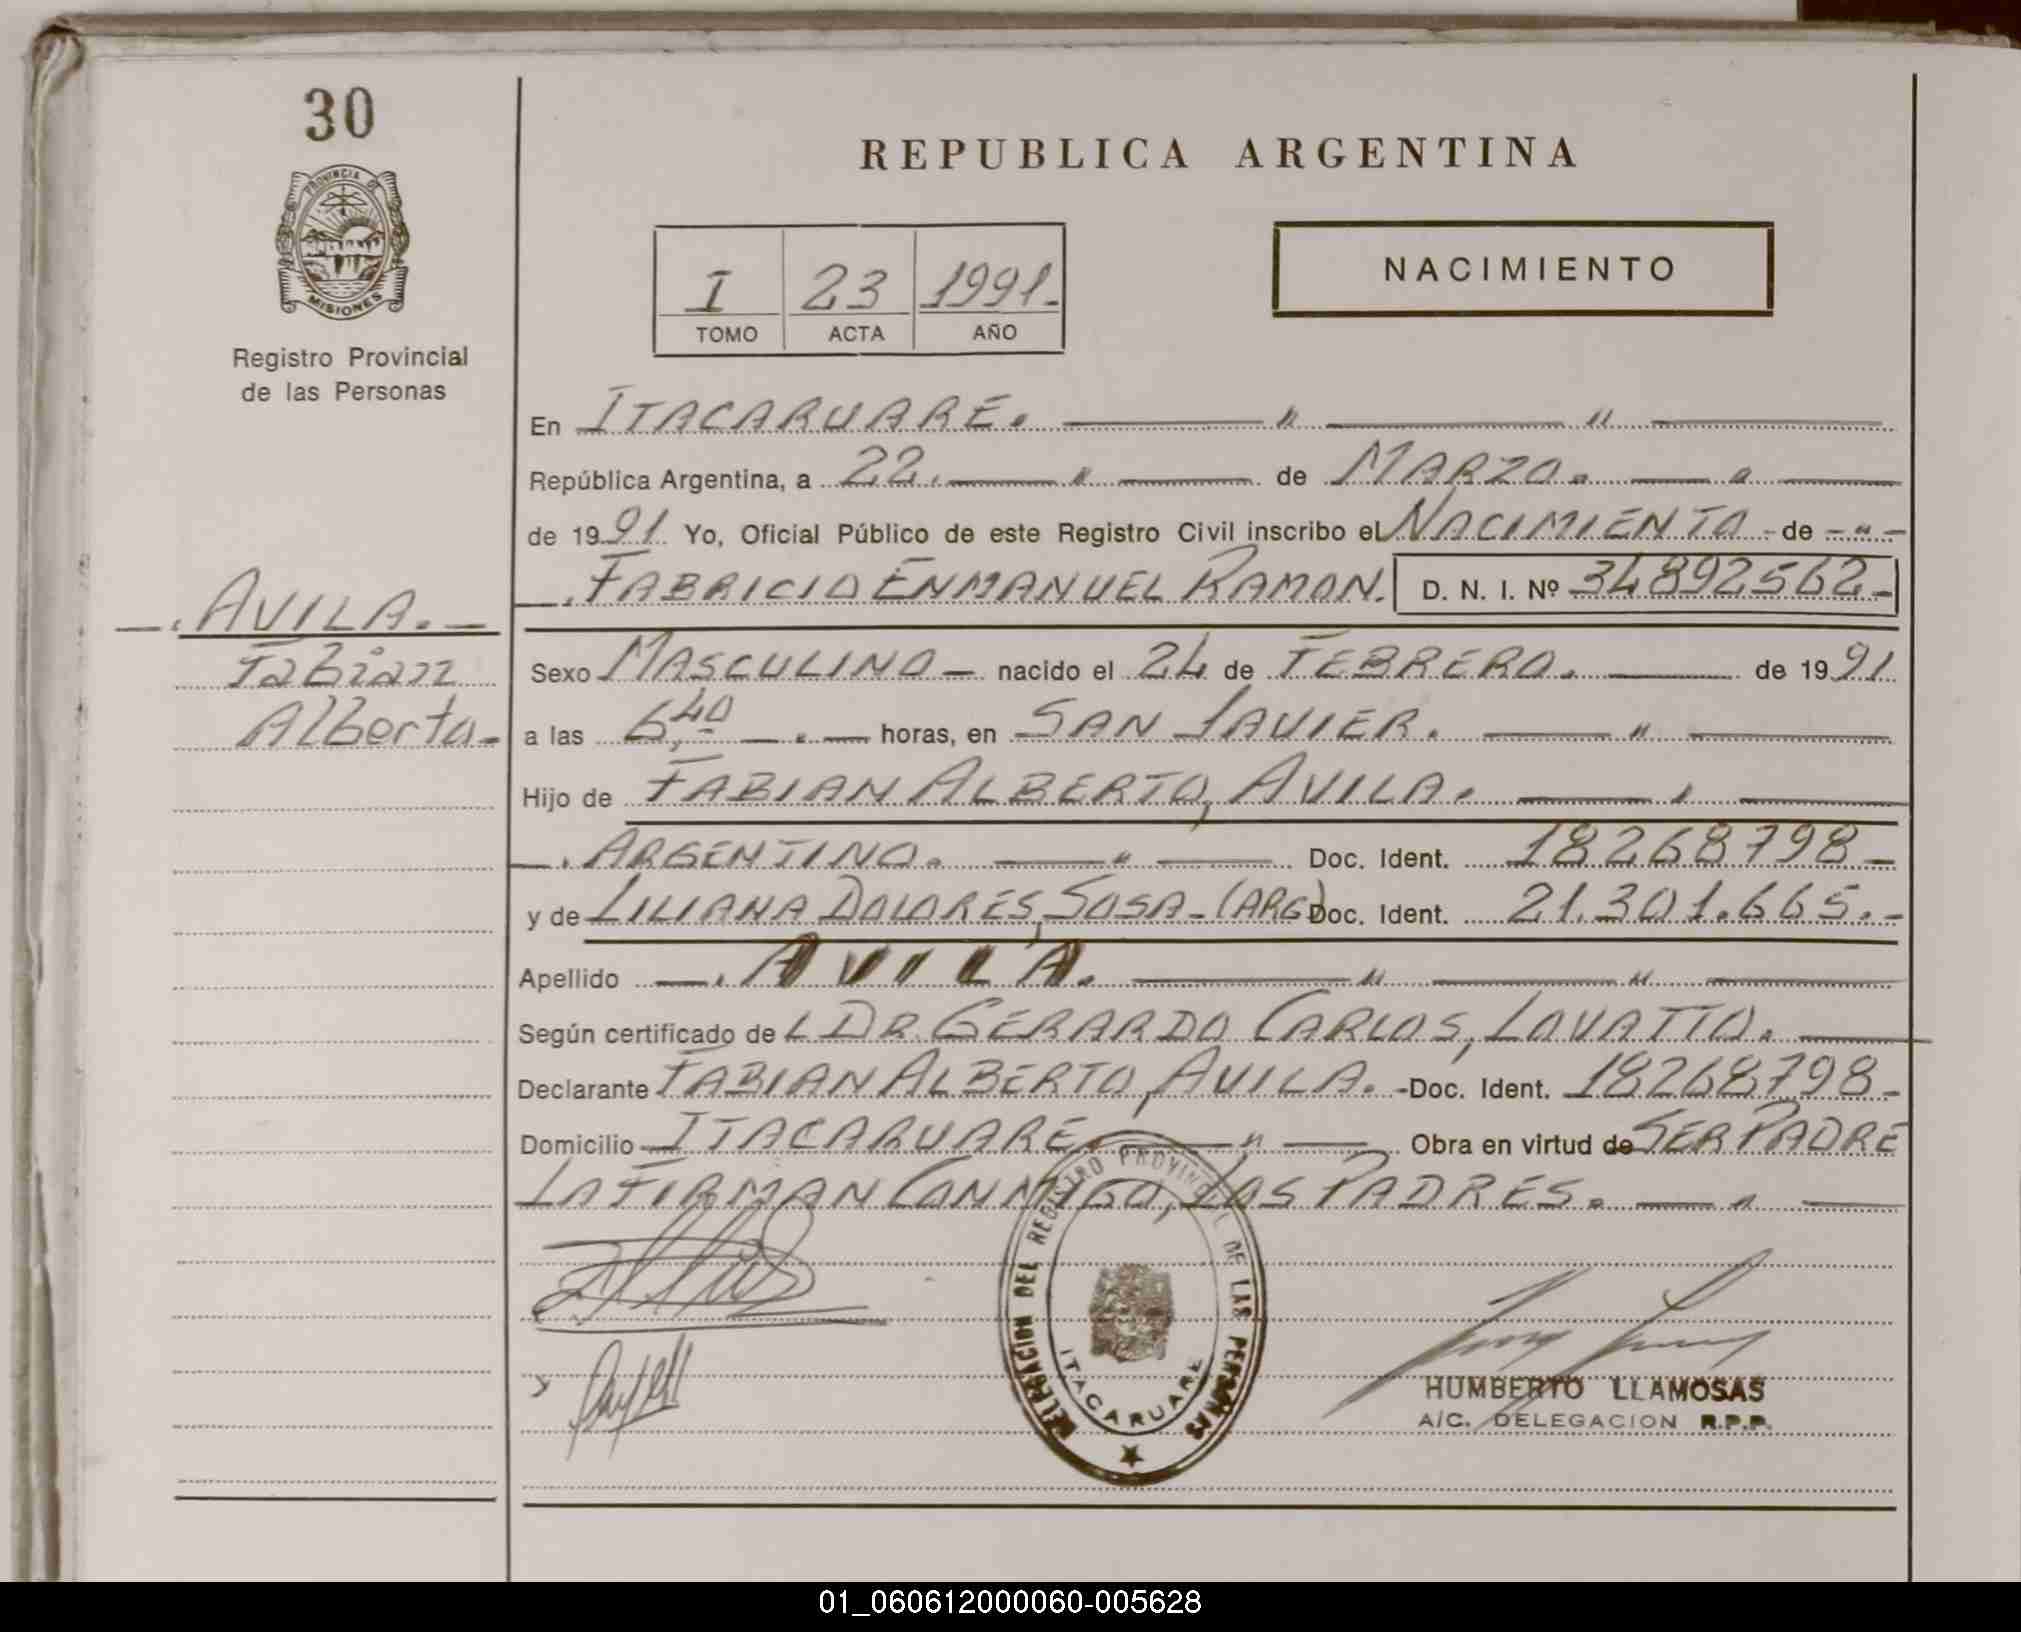 30
PROVINCIA DE
MISIONES
Registro Provincial
de las Personas
REPUBLICA ARGENTINA
I 23 1991.-
TOMO ACTA AÑO
NACIMIENTO
En ITACARUARE. — " — " —
República Argentina, a 22. — " — de MARZO. — " —
de 1991. Yo, Oficial Público de este Registro Civil inscribo el NACIMIENTO - de - " -
—. FABRICIO ENMANUEL RAMON. D. N. I. Nº 34892562-
—. AVILA. —
Fabian
Alberto-
Sexo MASCULINO — nacido el 24 de FEBRERO. — de 1991
a las 6,40 — . — horas, en SAN JAVIER. — " —
Hijo de FABIAN ALBERTO, AVILA. — " —
—. ARGENTINO. — " — Doc. Ident. 18268798-
y de LILIANA DOLORES, SOSA - (ARG) Doc. Ident. 21.301.665.-
Apellido —. AVILA. — " — " —
Según certificado de L DR. GERARDO CARLOS, LOVATTO. —
Declarante FABIAN ALBERTO, AVILA. - Doc. Ident. 18268798-
Domicilio — ITACARUARE. — " — Obra en virtud de SER PADRE
LA FIRMAN CONMIGO, LOS PADRES. — " —
DELEGACION DEL REGISTRO PROVINCIAL DE LAS PERSONAS
ITACARUARE
HUMBERTO LLAMOSAS
A/C. DELEGACION R.P.P.
01_060612000060-005628